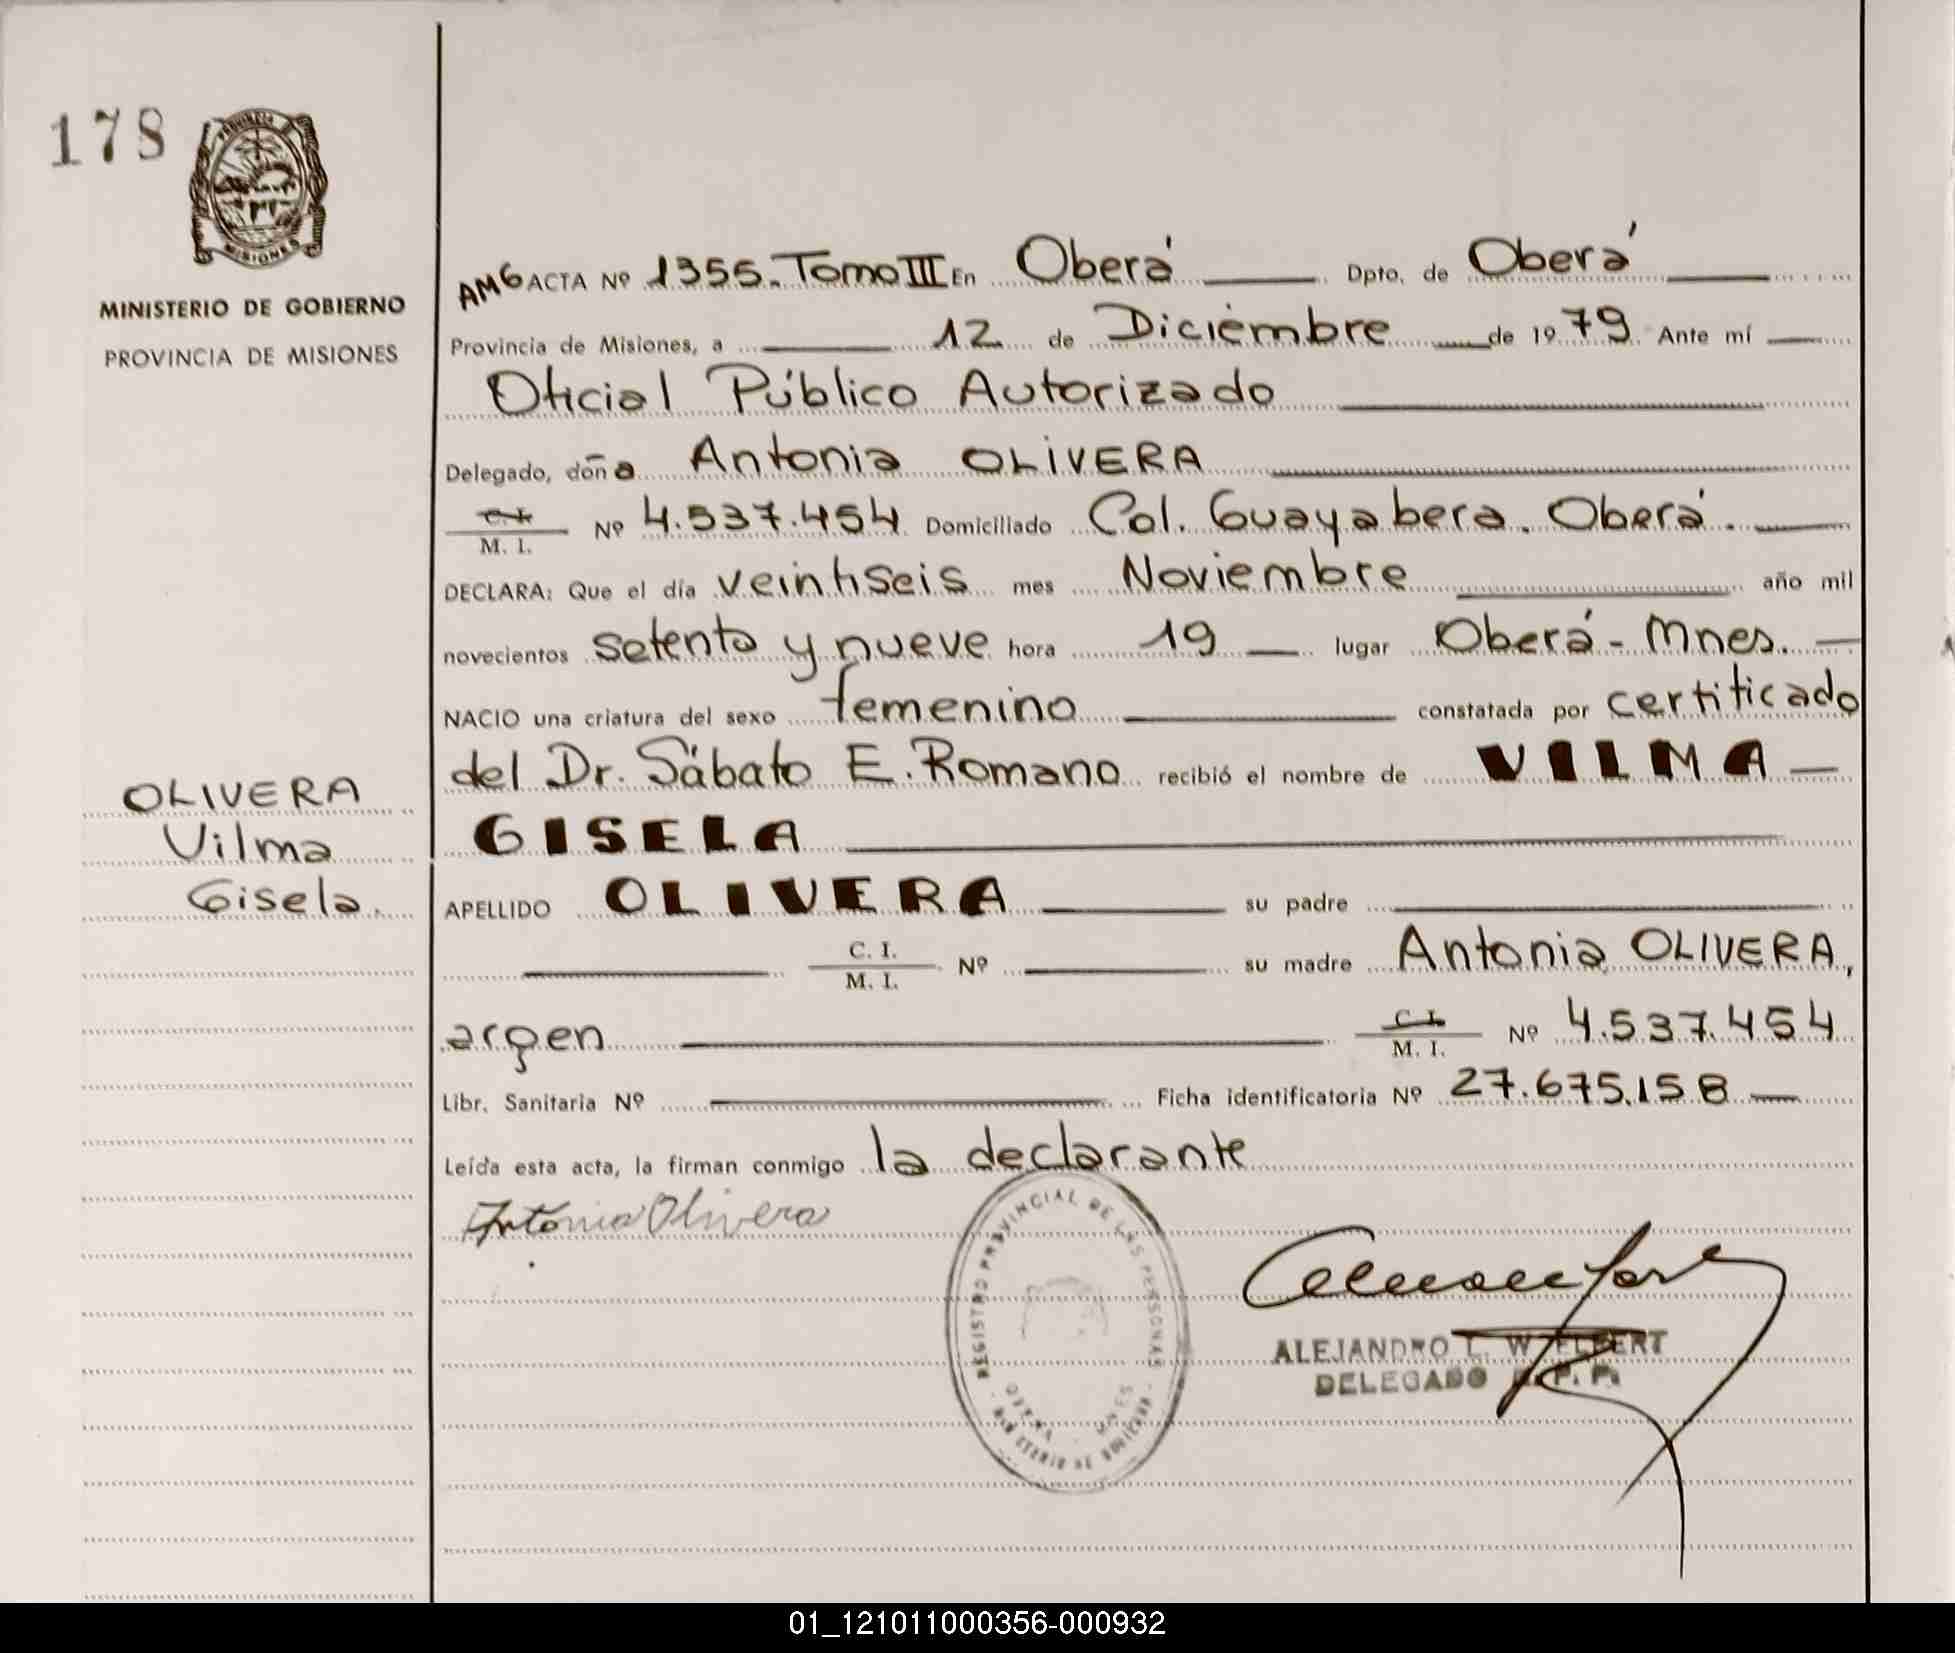 178
PROVINCIA
MISIONES
MINISTERIO DE GOBIERNO
PROVINCIA DE MISIONES
OLIVERA
Vilma
Gisela.
AMG ACTA Nº 1355. Tomo III En Oberá Dpto. de Oberá
Provincia de Misiones, a 12 de Diciembre de 1979 Ante mí
Oficial Público Autorizado
Delegado, doña Antonia OLIVERA
C. I.
M. I. Nº 4.537.454 Domiciliado Col. Guayabera. Oberá.
DECLARA: Que el día veintiseis mes Noviembre año mil
novecientos setenta y nueve hora 19 lugar Oberá - Mnes.
NACIO una criatura del sexo femenino constatada por certificado
del Dr. Sábato E. Romano recibió el nombre de VILMA
GISELA
APELLIDO OLIVERA su padre
C. I.
M. I. Nº su madre Antonia OLIVERA,
argen C. I.
M. I. Nº 4.537.454
Libr. Sanitaria Nº Ficha identificatoria Nº 27.675.158
Leída esta acta, la firman conmigo la declarante
Antonia Olivera
REGISTRO PROVINCIAL DE LAS PERSONAS
OBERA MNES
MINISTERIO DE GOBIERNO
ALEJANDRO L. W. ELBERT
DELEGADO R. P. P.
01_121011000356-000932